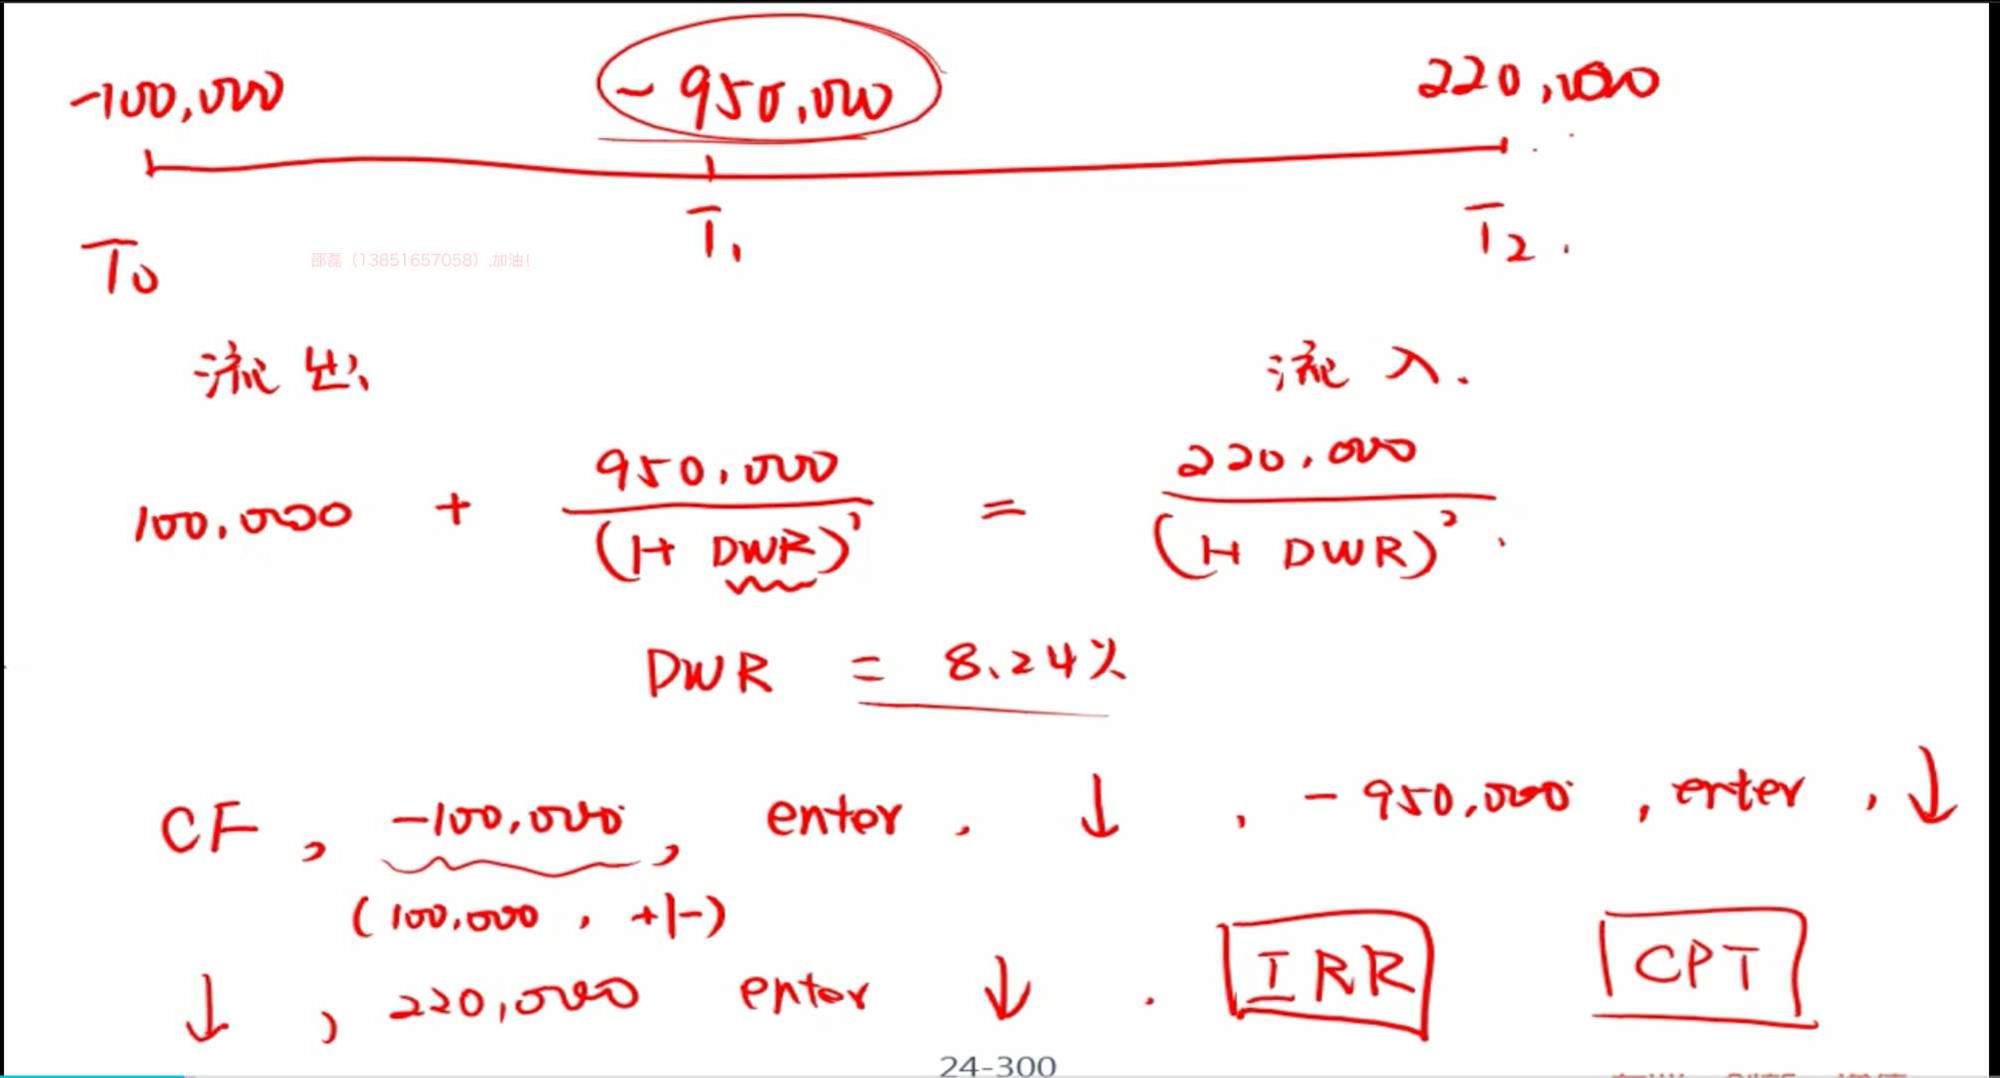 -100,000 - 950,000 220,000
T0 T1 T2.
邵磊（13851657058）,加油!
流出 流入.
100,000 + 950,000/(1+ DWR)^1 = 220,000/(1+ DWR)^2.
DWR = 8.24%
CF, -100,000, enter, ↓, -950,000, enter, ↓
(100,000, +|-)
↓, 220,000 enter ↓. IRR CPT
24-300